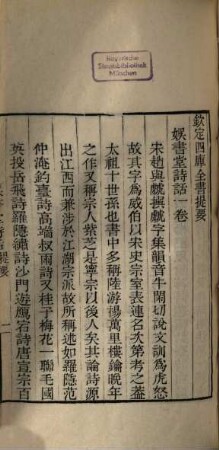 Bayerische
Staatsbibliothek
München
欽定四庫全書提要
娛書堂詩話一卷
宋趙與虤撰虤字集韻音牛閑切說文訓為虎怒
故其字為威伯以宋史宗室表連名次第考之蓋
太祖十世孫也書中多稱陸游楊萬里樓鑰晚年
之作又稱宗人紫芝是寧宗以後人矣其論詩源
出江西而兼涉於江湖宗派故所稱述如羅隱范
仲淹釣臺詩高端叔雨詩又桂子梅花一聯毛國
英投岳飛詩羅隱繡詩沙門遊鴈宕詩唐宣宗百